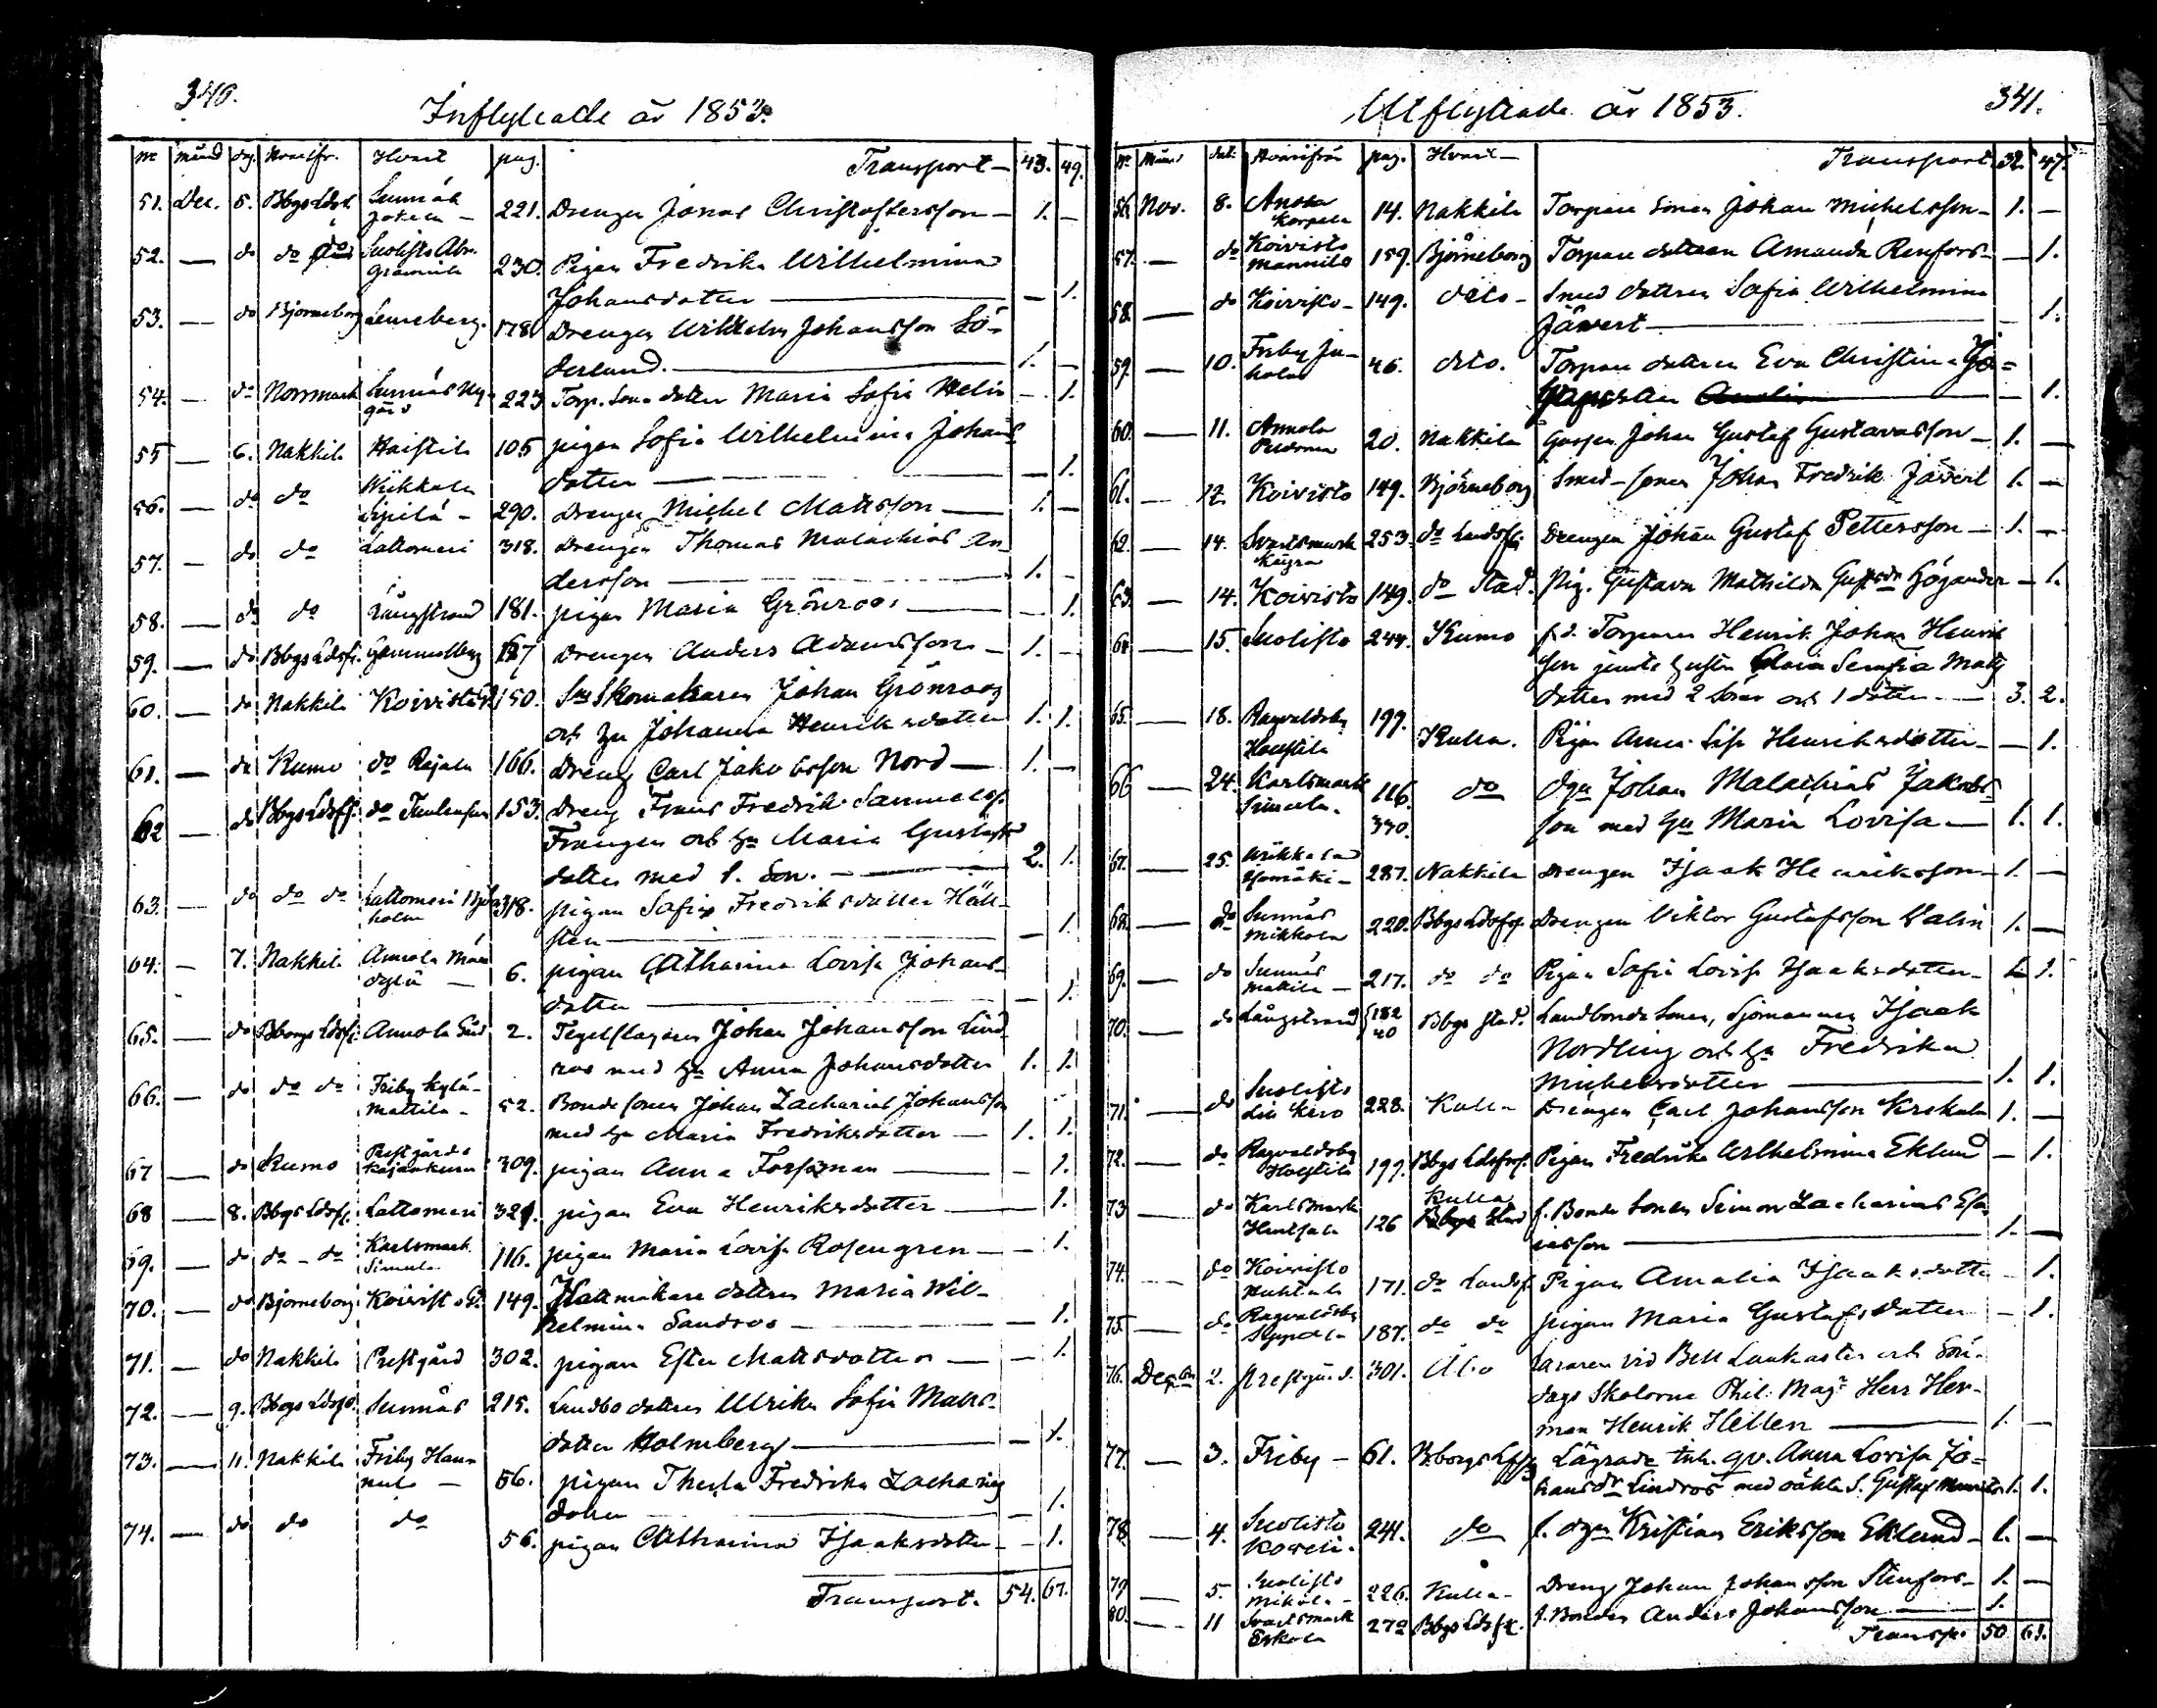 340.
Inflyttade år 1853.
No månd dag. Hvarifr. Hvart pag. Transport — 43. 49.
51. Dec. 5. Bbgs Ldsf. Sunnäs 221. Drengen Jonas Christoffersson — 1. —
52. — do do Suolisto 230. Pigan Fredrika Wilhelmina
Johansdotter — — 1.
53. — do Björneborg Leineberg. 178. Drengen Wilhelm Johansson Sö-
derlund. — 1. —
54. — do Norrmark Sunnäs Ny-
gård 223 Torp. Sone dotter Maria Sofia Helin — 1.
55 — 6. Nakkila Haistila 105 pigan Sofia Wilhelmina Johans
dotter — — 1.
56. — do do Wikkala
Sipilä — 290. Drengen Michel Mattsson — 1. —
57. — do do Lattomeri 318. Drengen Thomas Malachias An-
dersson — 1. —
58. — do do Långstrand 181. pigan Maria Grönroos — — 1.
59. — do Bbgs Ldsf. Gammelby 137 Drengen Anders Adamsson — 1. —
60. — do Nakkila Koivisto 150. Skomakaren Johan Grönroos
och hu Johanna Henriksdotter 1. 1.
61. — do Kumo do Rajala 166. Dreng Carl Jakobsson Nord — 1. —
62 — do Bbgs Ldsf. do 153. Dreng Frans Fredrik Samuelss.
Frangen och hu Maria Gustafs
dotter med 1. Son. — 2. 1.
63. — do do do Lattomeri Björk-
holm 318. pigan Sofia Fredriksdotter Häll-
sten — — 1.
64. — 7. Nakkila Annola 6. pigan Catharina Lovisa Johans-
dotter — — 1.
65. — do Bborgs Ldsf. Annola Gård 2. Tegelslagaren Johan Johansson Lind-
roos med hu Anna Johansdotter 1. 1.
66. — do do do Friby Kylä-
Mattila — 52. Bondesonen Johan Zacharias Johansson
med hu Maria Fredriksdotter — 1. 1.
67 — do Kumo Prestgårds 309. pigan Anna Forsman — — 1.
68 — 8. Bbgs Ldsf. Lattomeri 321. pigan Eva Henriksdotter — 1.
69. — do do do Karlsmark
Simula 116. pigan Maria Lovisa Rosengren — — 1.
70. — do Björneborg Koivisto 149. Hattmakare dottren Maria Wil-
helmina Sandroos — — 1.
71. — do Nakkila Prestgård 302. pigan Ester Mattsdotter — — 1.
72. — 9. Bbgs Ldsf. Sunnäs 215. Landbo dottren Ulrika Sofia Matts-
dotter Holmberg — — 1.
73. — 11. Nakkila Friby Han-
nula — 56. pigan Thecla Fredrika Zacharias
dotter — 1.
74. — do do do 56. pigan Catharina Isaaksdotter — — 1.
Transport. 54. 67.
341.
Utflyttade år 1853.
No Månad dat. Hvarifrån pag. Hvart — Transport 32. 47.
56. Nov. 8. Anola
Korpela 14. Nakkila Torpare Sonen Johan Michelsson — 1. —
57. — do Koivisto
Mannila 159. Björneborg Torpare dottren Amanda Renfors — — 1.
58. — do Koivisto — 149. dito — Smed dottren Sofia Wilhelmina
Jävert — — 1.
59. — 10. Friby Ju-
hola 46. dito. Torpare dottren Eva Christina Gö-
— 1.
60. — 11. Annola 20. Nakkila Gossen Johan Gustaf Gustavsson — 1. —
61. — 12 Koivisto 149. Björneborg Smed-sonen Johan Fredrik Jävert 1. —
62. — 14. Svartsmark
Käyrä 253. do Landsf. Drengen Johan Gustaf Pettersson — 1. —
63. — 14. Koivisto 149. do Stad. Pig. Gustava Mathilda Höglander — 1.
64 — 15. Suolisto 244. Kumo f.d. Torparen Henrik Johan Henrik
son jemte hustru Maria Serafia Matts
dotter med 2 Söner och 1 dotter — 3. 2.
65. — 18. Ragvaldsby
Haistila 199. Kulla. Pigan Anna Lisa Henriksdotter — — 1.
66 — 24. Karlsmark
Simula. 116.
330. do Dgn Johan Malachias Jakobs-
son med hu Maria Lovisa — 1. 1.
67. — 25. Wikkala 287. Nakkila Drengen Isaak Henriksson — 1. —
68. — do Sunnäs
Mikkola 220. Bbgs Ldsf. Drengen Viktor Gustafsson Valin 1. —
69. — do Sunnäs
Makila — 217. do do Pigan Sofia Lovisa Isaaksdotter — 1.
70. — do Långstrand 182
40 Bbgs stad. Landbonde Sonen, Sjömannen Isaak
Nordling och hu Fredrika
Michelsdotter — 1. 1.
71. — do Suolisto 228. Kulla Drengen Carl Johansson Krekula 1. —
72. — do Ragvaldsby
Haistila 199. Bbgs Ldsf. Pigan Fredrika Wilhelmina Eklund — 1.
73 — do Karlsmark 126 Kulla
Bbgs Stad f. Bonde Sonen Simon Zacharias Esa-
iasson — 1. —
74. — do Koivisto
Huhtala 171. do Landsf. Pigan Amalia Isaaksdotter — 1.
75. — do Ragvaldsby 187. do do pigan Maria Gustafsdotter — 1.
76. Decbr 2. Prestgård. 301. Åbo Läraren vid Bell Lankaster och Sön-
dags Skolorna Phil: Magr Herr Her-
man Henrik Hellen — 1. —
77. — 3. Friby — 61. Bborgs Lfs Lägrade enk. qv. Anna Lovisa Jo-
hansdr Lindros med oäkta S. Gustaf 1. 1.
78. — 4. Suolisto 241. do f. dgn Kristian Eriksson Eklund — 1. —
79 — 5. Suolisto
Mikola — 226. Kulla — Dreng Johan Johansson Stenfors — 1. —
80. — 11 Svartsmark
Eskola 272 Bbgs Ldsf. f. Bonden Anders Johansson — 1.
Transp. 50 61.